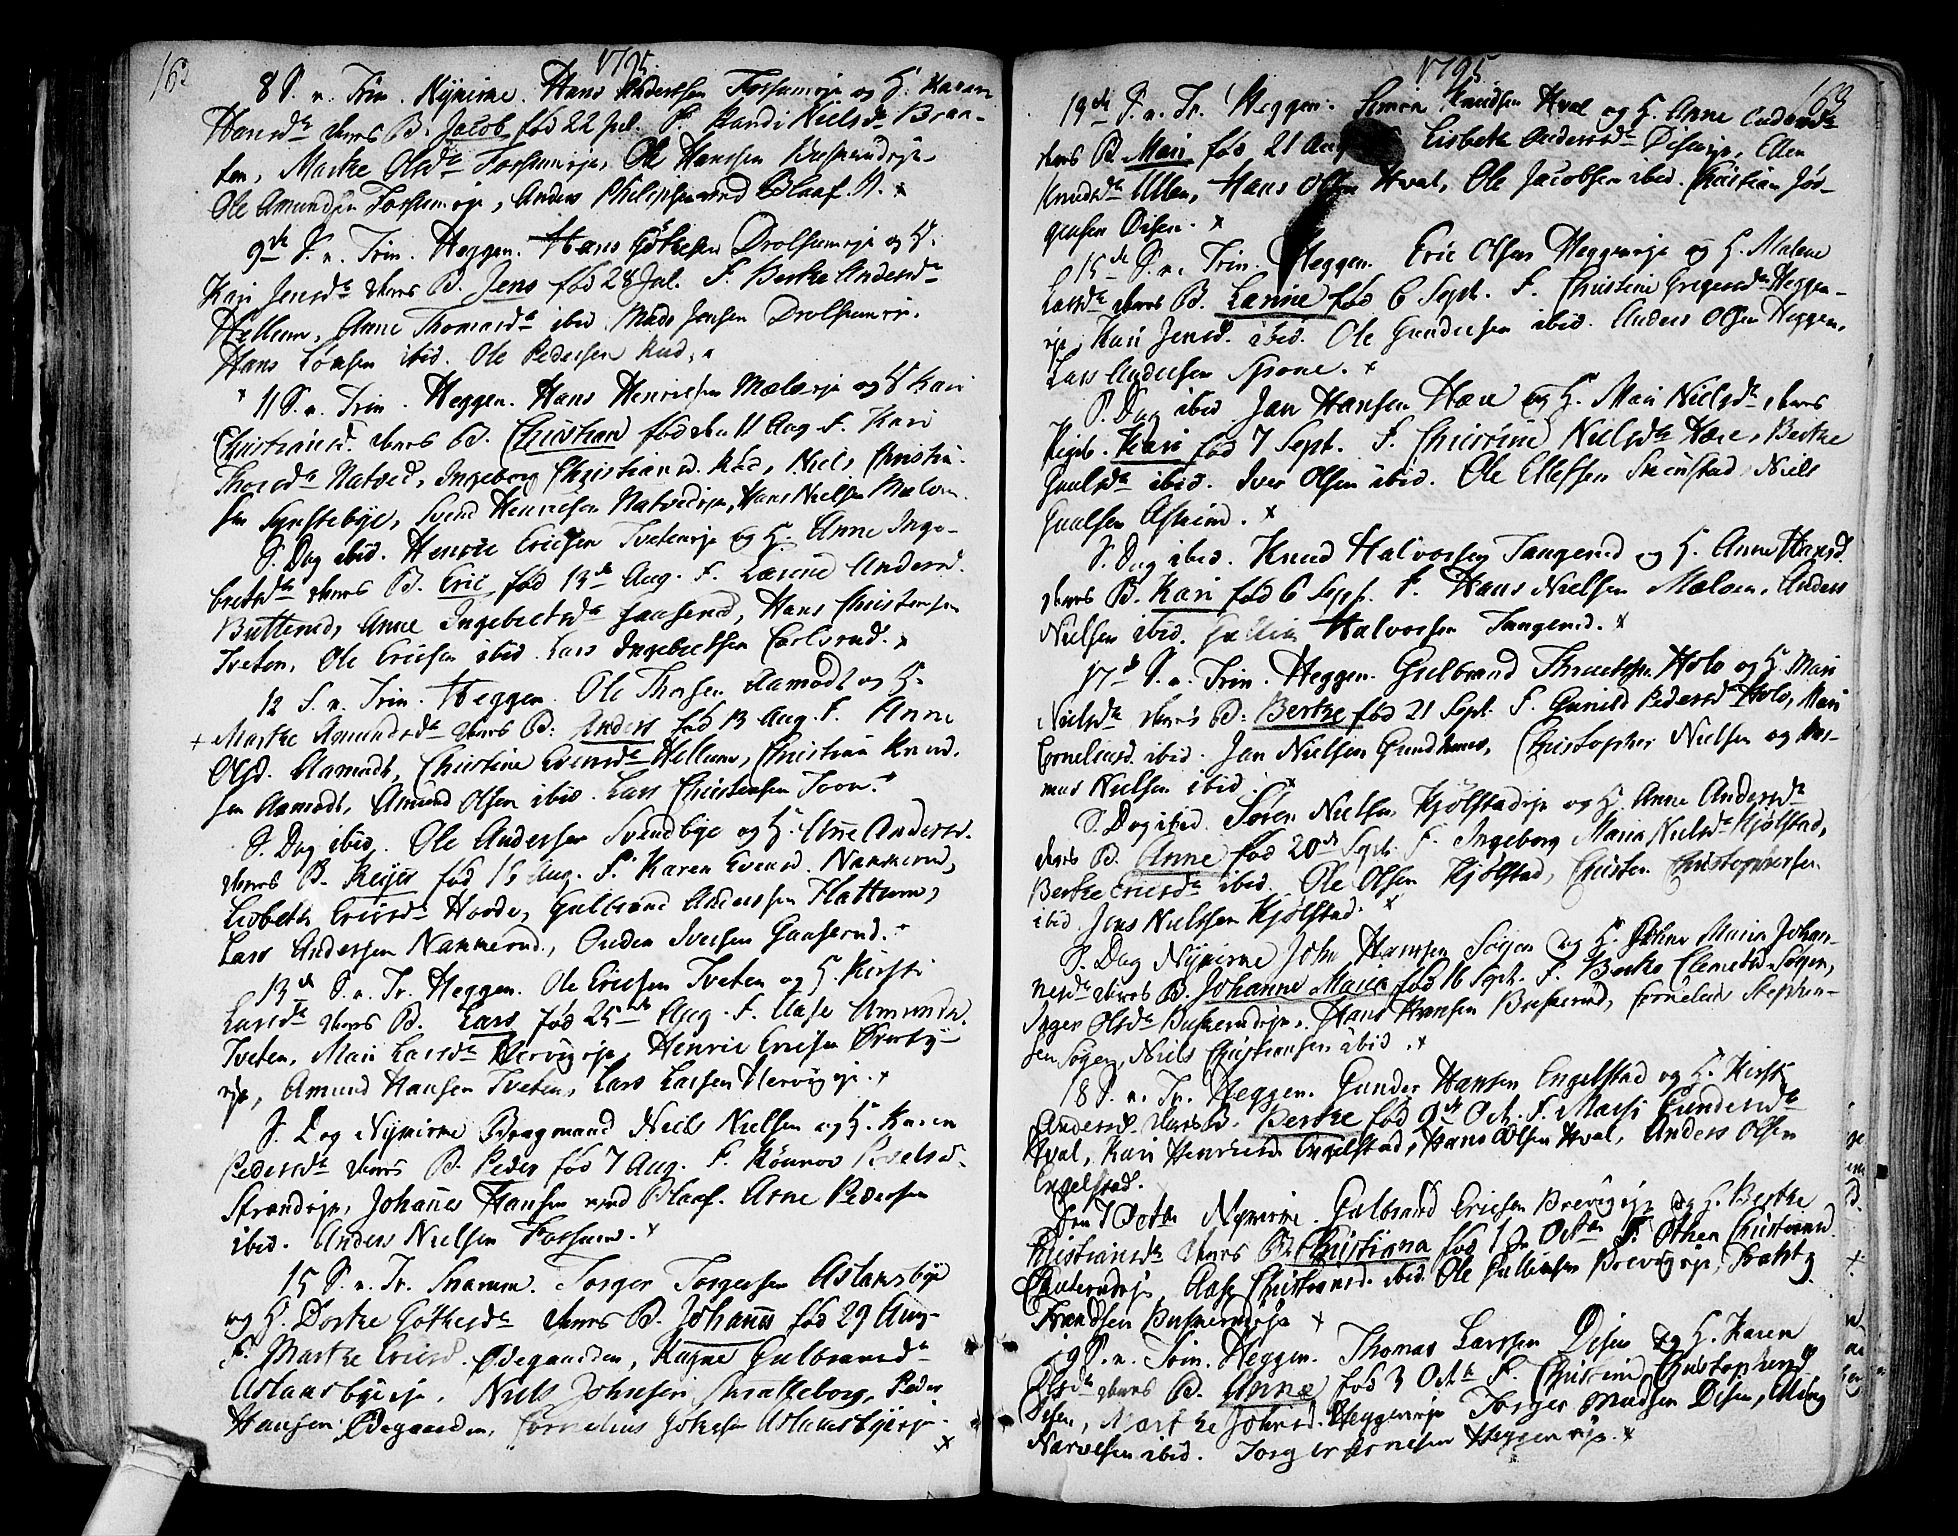 162
1795.
8 S. n. Trin. Nykirke. Hans Andersen Fossumeje og H. Karen
Hansd. deres B. Jacob fød 22 Jul. F. Randi Nielsd. Bran-
ten, Marthe Olsd. Fossumeje, Ole Hanssen Buskerudeje
Ole Amundsen Fossumeje, Anders Philipsen ved Blaaf. V. x
9de S. n. Trin. Heggen. Hans Gothesen Drolsumeje og H.
Kari Jensd. deres B. Jens fød 28 Jul. F. Berthe Andersd.
Hellum, Anne Thomasd. ibid Mads Jensen Drolsumeje.
Hans ibid. Ole Pedersen Rud, x
11 S. n. Trin. Heggen. Hans Henricsen Mælumeje og H Kari
Christiansd. deres B. Christian fød den 11 Aug F. Kari
Thoresd. Natved, Ingeborg Christiansd. Rud, Niels Christi-
sen Synstebye, Svend Henricsen Natvedeje, Hans Nielsen Mælum.
S. Dag ibid. Henric Ericsen Tveteneje og H. Anne Inge-
bretsd. deres B. Eric fød 13de Aug. F. Andersd.
Butterud, Anne Ingebretsd. Gaaserud, Hans Christensen
Tveten, Ole Ericsen ibid Lars Ingebretsen Carlsrud. x
12 S. n. Trin. Heggen. Ole Thorsen Aamodt og H.
+ Marthe Amundsd. deres B: Anders fød 13 Aug. F. Anne
Olsd. Aamodt, Christine Evensd. Hellum, Christian Knud-
sen Aamodt, Amund Olsen ibid. Lars Christensen Toon. x
S. Dag ibid. Ole Andersen Svendbye og H. Anne Andersd.
deres B. Reyer fød 15 Aug. F. Karen Evensd. Nammerud,
Lisbeth Ericsd. Hovde, Gulbrand Anderssen Flattum,
Lars Andersen Nammerud, Ouden Iversen Gaaserud. x
13de S. n. Tr. Heggen. Ole Ericsen Tveten og H. Kirsti
Larsd. deres B. Lars fød 25de Aug. F. Aase Amundsd.
Tveten, Mari Larsd. Hervigeje, Henric Ericsen Overby-
eje, Amund Hansen Tveten, Lars Larsen Hervigeje. x
S. Dag Nykirke Bragmand Niels Nielsen og H. Karen
Pedersd. deres B. Peder fød 7 Aug. F. Rønnov Poulsd.
Strandeje, Johannes Hansen ved Blaaf. Arne Pedersen
ibid. Anders Nielsen Fossum. x
15 S. n. Tr. Snarum. Torger Torgersen Aslaksbye
og H. Dorthe Gothesd. deres B. Johannes fød 29 Aug.
F. Marthe Ericsd. Ødegaarden, Ragne Gulbrandsd.
Aslaksbyeeje. Niels Johnsen Skralleborg, Peder
Hansen Ødegaarden, Cornelius Gothesen Aslaksbyeeje.
x
1795
163
19de S. n. Tr. Heggen. Simen Knudsen Hval og H. Anne
deres B. Mari fød 21 Aug Lisbeth Andersd. Diseneje, Ellen
Knudsd. Ullern, Hans Olsen Hval, Ole Jacobsen ibid. Christian Jør-
gensen Disen. x
15de S. n. Trin. Heggen. Eric Olsen Heggeneje og H. Malene
Larsd. deres B. Larine fød 6 Sept. F. Christine Gregersd. Heggen-
eje, Kari Jensd. ibid. Ole Gundersen ibid. Anders Olsen Heggen,
Lars Andersen Spone. x
S. Dag ibid Jan Hansen Hære og H. Mari Nielsd. deres
Pigeb. Kari fød 7 Sept. F. Christine Nielsd. Hære, Berthe
Guulsd. ibid. Iver Olsen ibid. Ole Ellefsen Skinstad Niels
Guulsen Askerud. x
S. Dag ibid. Knud Halvorsen Tangerud og H. Anne Hansd.
deres B. Kari fød 6 Sept. F. Hans Nielsen Mælum, Anders
Nielsen ibid. Halvorsen Tangerud. x
17de S. n. Trin. Heggen. Gulbrand Holo og H. Mari
Nielsd. deres B: Berthe fød 21 Sept. F. Gunild Pedersd. Holo, Mari
Cornelsd. ibid. Jan Nielsen Gundhuus, Christopher Nielsen og Ras-
mus Nielsen ibid. x
S. Dag ibid Søren Nielsen Kjølstadeje og H. Anne Andersd.
deres B. Anne fød 20de Sept. F. Ingeborg Maria Nielsd. Kjølstad,
Berthe Ericsd. ibid. Ole Olsen Kjølstad, Christen Christophersen
ibid Jens Nielssen Kjølstad. x
S. Dag Nykirke John Hansen Sogen og H. Johne Maria Johan-
nesd. deres B. Johanne Maria fød 16 Sept. F. Berthe Clemetsd. Sogen,
Inger Olsd. Buskerudeje, Hans Hansen Buskerud, Cornelius Stephen-
sen Sogen, Niels Christiansen ibid. x
18 S. n. Tr. Heggen. Gunder Hansen Engelstad og H. Kirsti
Andersd. deres B. Berthe fød 9de Oct. F. Marthe Gundersd.
Hval, Kari Henricsd. Engelstad, Hans Olsen Hval, Anders Olsen
Engelstad.
den 7 Octbr Nykirke. Gulbrand Ericsen Brevigeje og H. Berthe
Christiansd. deres B. Christiana fød 1 Octbr F. Christiansd.
Aase Christiansd. ibid. Ole Gulbransen Brevigeje,
Frandsen Buskerudeje x
19 S. n. Trin. Heggen. Thomas Larssen Disen og H. Karen
Olsd. deres B. Anne fød 3 Octbr F. Christine Christophersd.
Disen, Marthe Johnsd. Heggeneje Torger Madsen Disen,
Narvesen ibid. Torger Arnesen Heggeneje. x